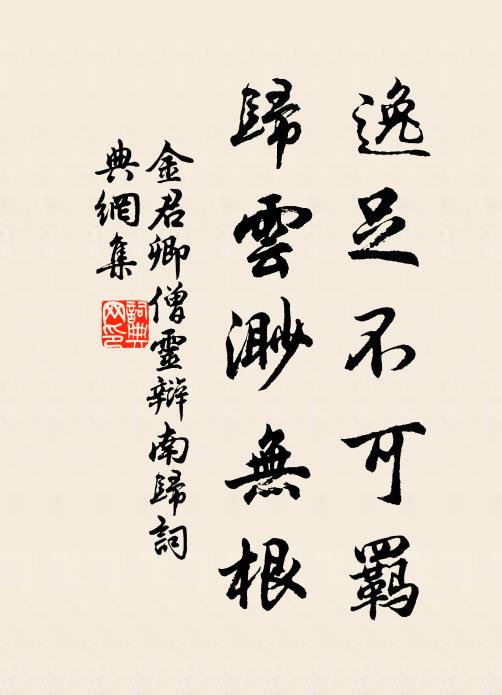 逸足不可羁
歸雲渺無根
金君卿僧靈辯南歸詞
典網集
詞典網印